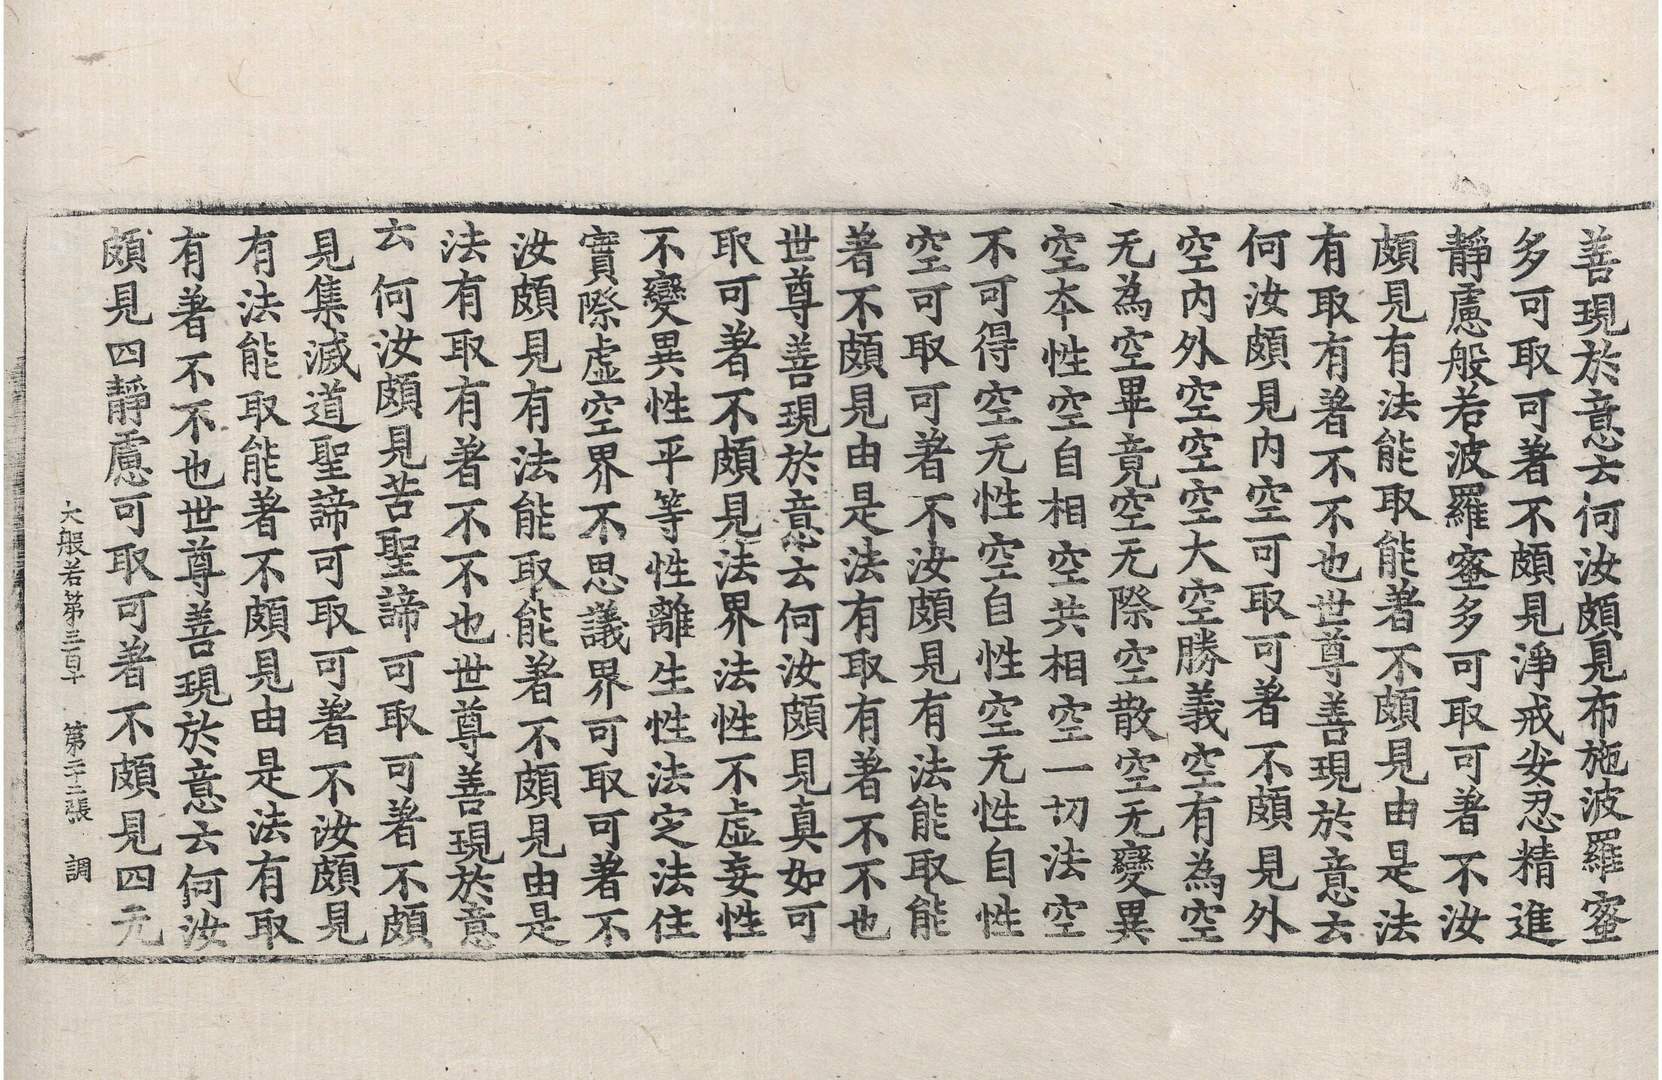 善現於意云何汝頗見布施波羅蜜
多可取可著不頗見淨戒安忍精進
靜慮般若波羅蜜多可取可著不汝
頗見有法能取能著不頗見由是法
有取有著不不也世尊善現於意云
何汝頗見內空可取可著不頗見外
空內外空空空大空勝義空有為空
无為空畢竟空无際空散空无變異
空本性空自相空共相空一切法空
不可得空无性空自性空无性自性
空可取可著不汝頗見有法能取能
著不頗見由是法有取有著不不也
世尊善現於意云何汝頗見真如可
取可著不頗見法界法性不虛妄性
不變異性平等性離生性法定法住
實際虛空界不思議界可取可著不
汝頗見有法能取能著不頗見由是
法有取有著不不也世尊善現於意
云何汝頗見苦聖諦可取可著不頗
見集滅道聖諦可取可著不汝頗見
有法能取能著不頗見由是法有取
有著不不也世尊善現於意云何汝
頗見四靜慮可取可著不頗見四无
大般若第三百 第二十二張 調